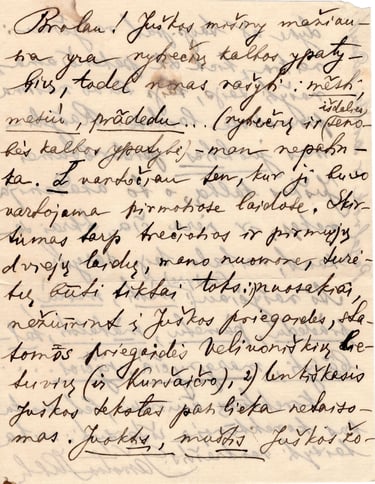 Brolau! Juškos mažiau-
sia yra rytiečių kalbos ypaty-
bių, todel noras rašyti: mėsti,
metiù, prãdedu... (rytiečių ir išdalies seno-
bės kalbos ypatybė) – man nepatin-
ka. Ł vartočiau ten, kur ji buvo
vartojama pirmotiose laidose. Skir-
tumas tarp trečiotios ir pirmųjų
dviejų laidų, mano nuomone, turė-
tų būti tiktai toks: nuosakiai,
nežiūrint į Juškos priegaidės, sta-
tomos priegaidės veliuoniškių lie-
tuvių (ir Kuršaičio), 2) lenkiškasis
Juškos tekstas palieka netaiso-
mas. Juoktis, muštis Juškos žo-